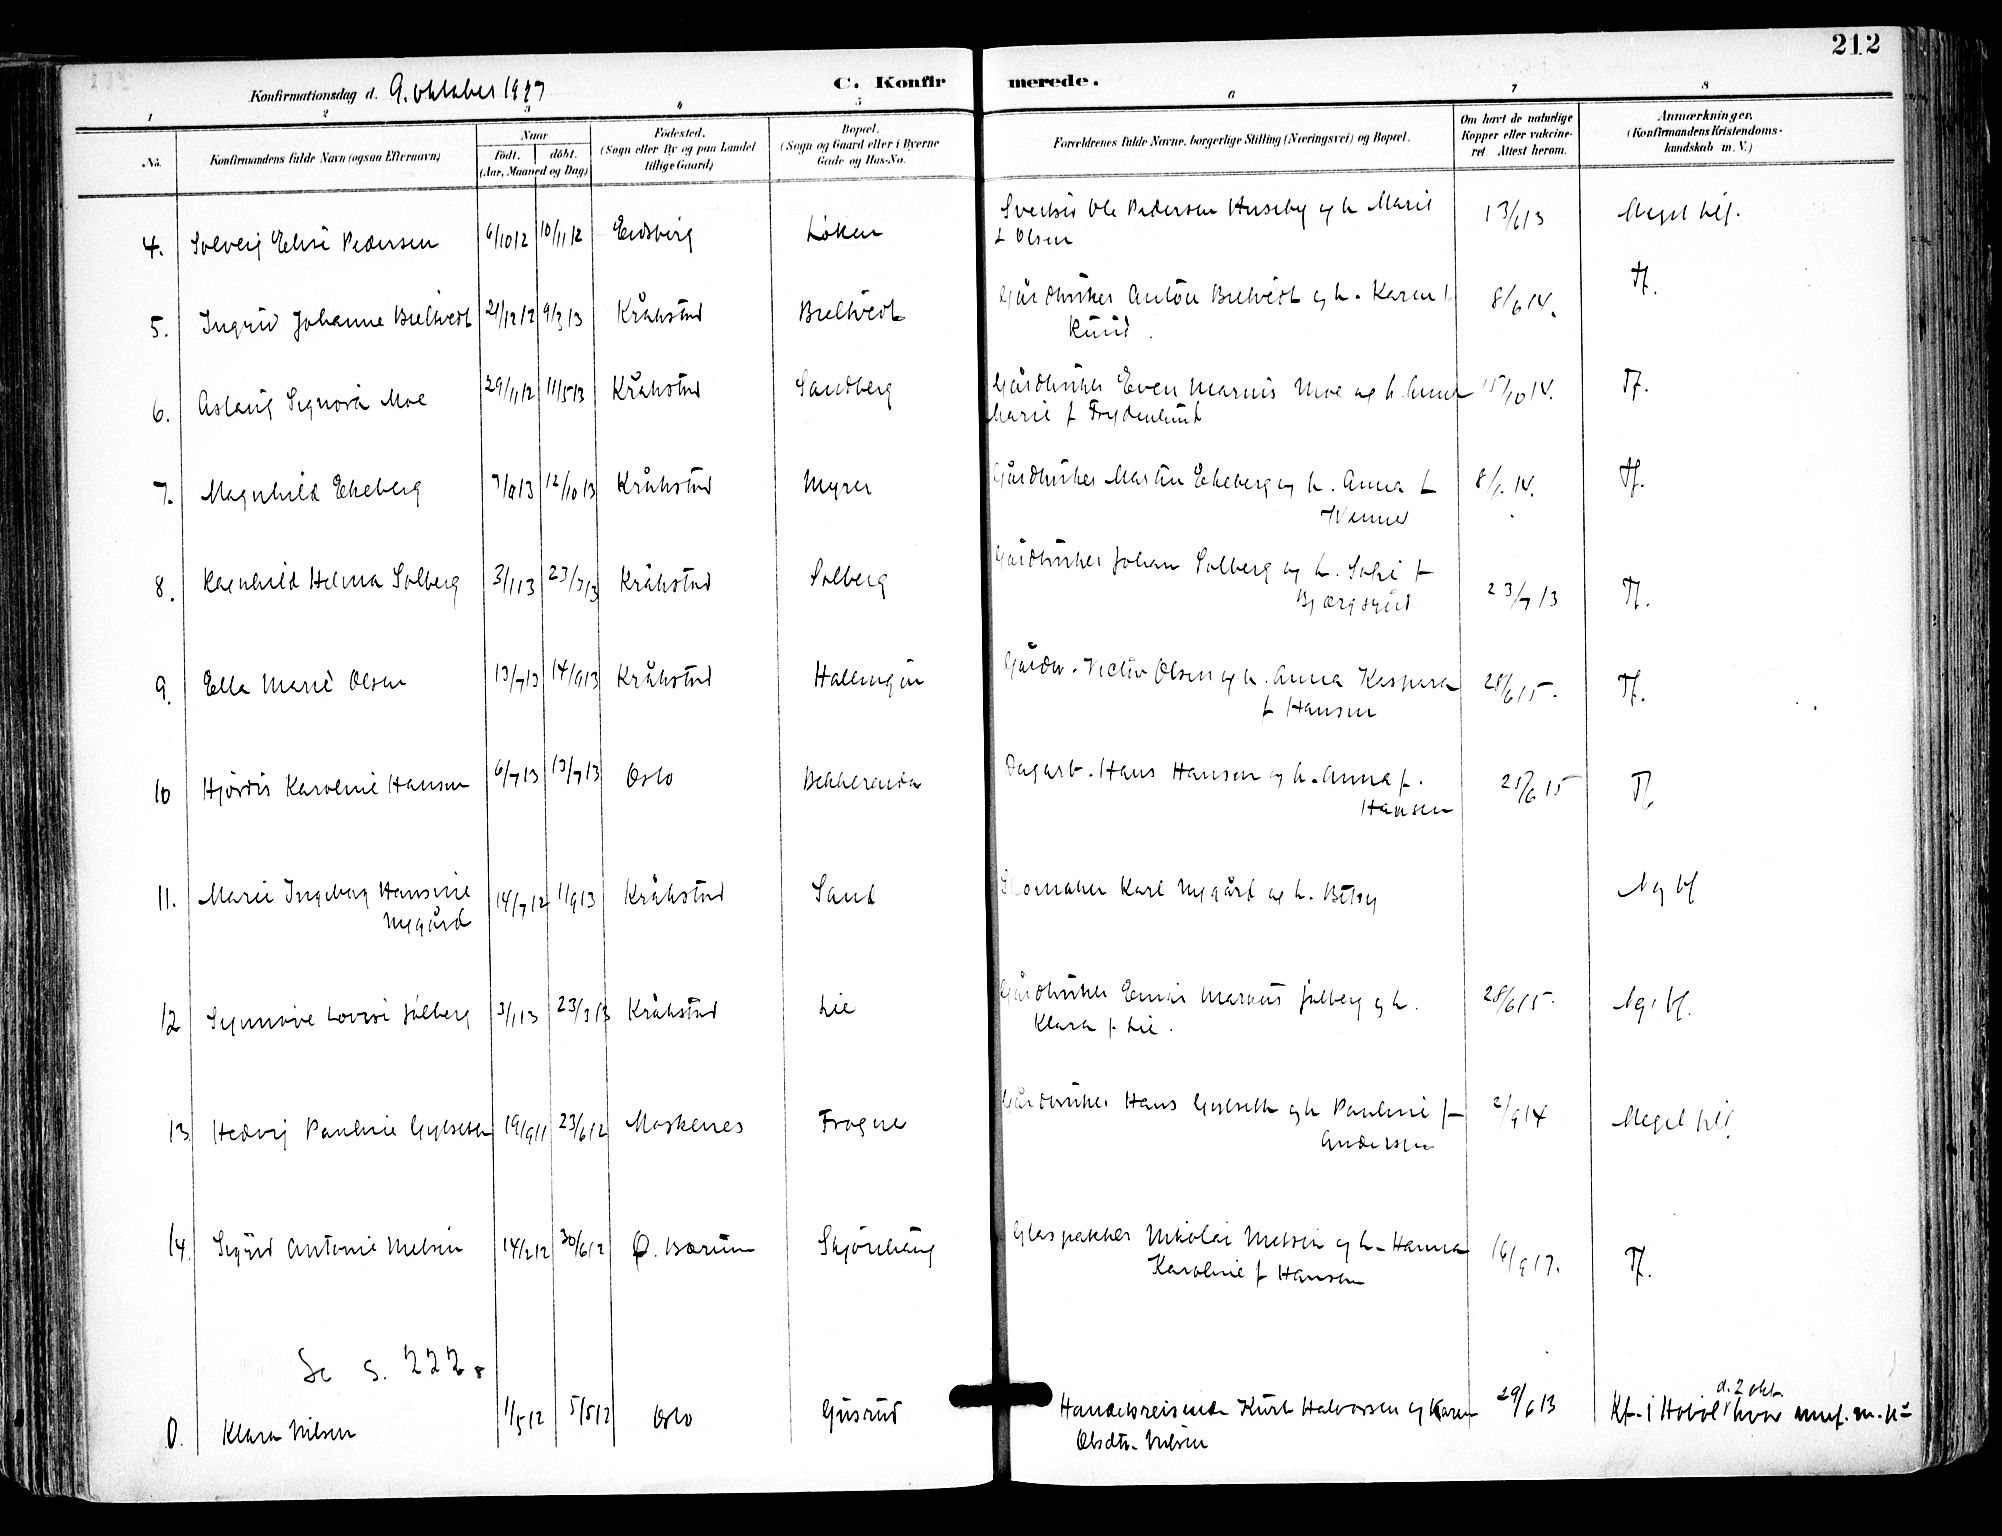 212
Konfirmationsdag d. 9. oktober 1927
C. Konfirmerede.
1 2 3 4 5 6 7 8
No. Konfirmandens fulde Navn (ogsaa Efternavn) Naar født. døbt. (Aar, Maaned og Dag) Fødested. (Sogn eller By og paa Landet tillige Gaard) Bopæl. (Sogn og Gaard eller i Byerne Gade og Hus-No. Forældrenes fulde Navne, borgerlige Stilling (Næringsvei) og Bopæl. Om havt de naturlige Kopper eller vakcineret. Attest herom. Anmærkninger. (Konfirmandens Kristendomskundskab m. V.)
4. Solveig Elise Pedersen 6/10 12 10/11 12 Eidsberg Løken Sveitser Ole Pedersen Huseby og h. Marie
f. Olsen 13/6 13 Meget tilf.
5. Ingrid Johanne Breltvedt 21/12 12 9/3 13 Kråkstad Breltvedt Gårdbruker Anton Breltvedt og h. Karen f.
Ruud. 8/6 14. Tf.
6. Aslaug Signora Moe 29/11 12 11/5 13 Kråkstad Sandberg Gårdbruker Even Marius Moe og h. Anna
Marie f. Frydenlund 15/10 14. Tf.
7. Magnhild Ekeberg 7/9 13 12/10 13 Kråkstad Myrer Gårdbruker Martin Ekeberg og h. Anna f.
8/6 14. Tf.
8. Ragnhild Helma Solberg 3/1 13 23/3 13 Kråkstad Solberg Gårdbruker Johan Solberg og h. Sofie f.
23/7 13 Tf.
9. Ella Marie Olsen 13/7 13 14/9 13 Kråkstad Gårdbr. Victor Olsen og h. Anna Kaspara
f. Hansen 28/6 15. Tf.
10 Hjørdis Karoline Hansen 6/7 13 13/7 13 Oslo Dagarb. Hans Hansen og h. Anna f.
Hansen 25/6 15 Tf.
11. Marie Ingeborg Hansine
Nygård 14/7 12 1/9 13 Kråkstad Sand Skomaker Karl Nygård og h. Betsy Ng tf
12 Synnøve Lovise Julberg 3/1 13 23/3 13 Kråkstad Lie Gårdbruker Einar Markus Julberg og h.
Klara f. Lie. 28/6 15. Ng. tf.
13 Hedvig Pauline Gylseth 19/9 11 23/6 12 Moskenes Frogne Gårdbruker Hans Gylseth og h Pauline f.
Andersen 2/9 14 Meget tilf.
14. Sigrid Antonie Nielsen 14/2 12 30/6 12 Ø. Bærum Skjørehaug Glaspakker Nikolai Nielsen og h. Hanna
Karoline f. Hansen 16/9 17. Tf.
Se s. 222.
0. Klara Nilsen 1/5 12 5/5 12 Oslo Gusrud Handelsreisende Kurt Halvorsen og Karen
Olsdtr. Nilsen 29/6 13 Kf. i Hobøl d. 2 okt. hvor